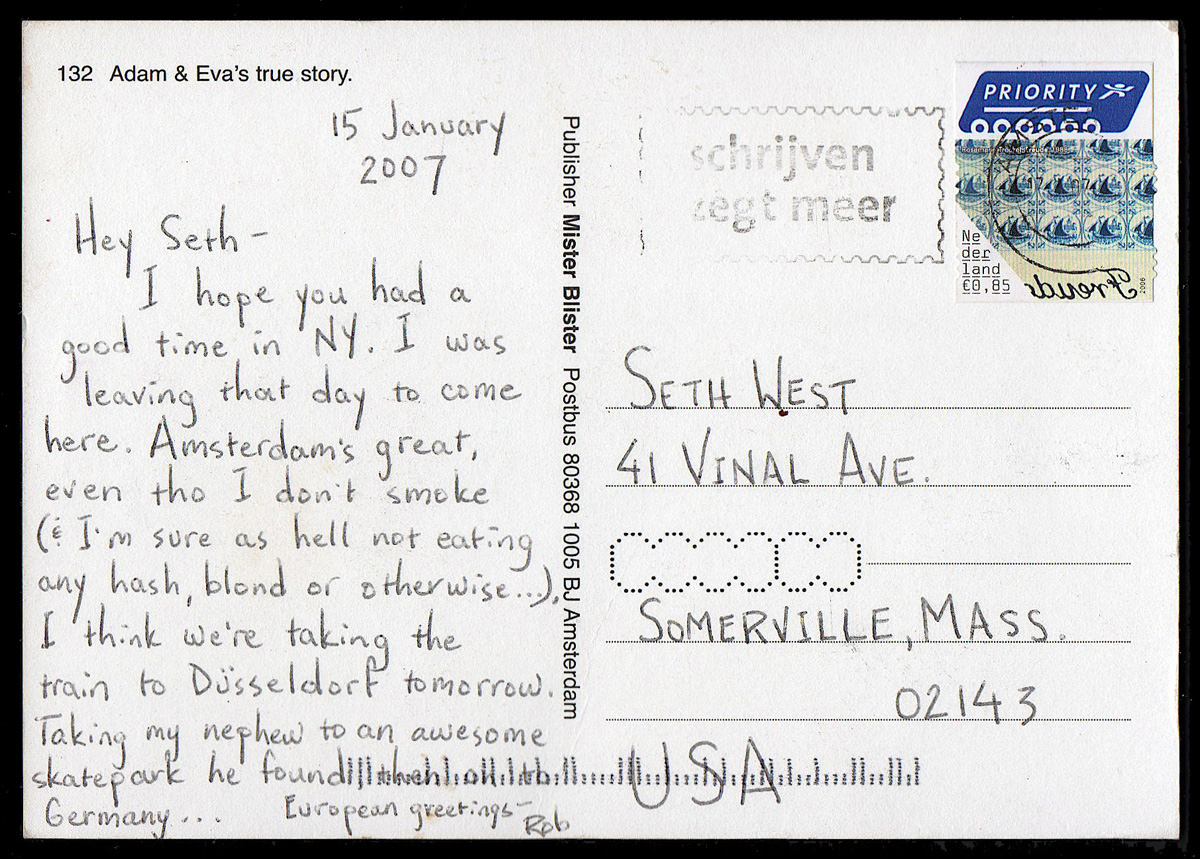 132 Adam & Eva's true story.
15 January
2007
Hey Seth-
I hope you had a
good time in NY. I was
leaving that day to come
here. Amsterdam's great,
even tho I don't smoke
(& I'm sure as hell not eating
any hash, blond or otherwise...),
I think we're taking the
train to Düsseldorf tomorrow.
Taking my nephew to an awesome
skatepark he found, then on to
Germany...
European greetings-
Rob
Publisher Mister Blister Postbus 80368 1005 BJ Amsterdam
schrijven
zegt meer
PRIORITY
Ne
der
land
€0,85
Freude
2006
SETH WEST
41 VINAL AVE.
SOMERVILLE, MASS.
02143
USA